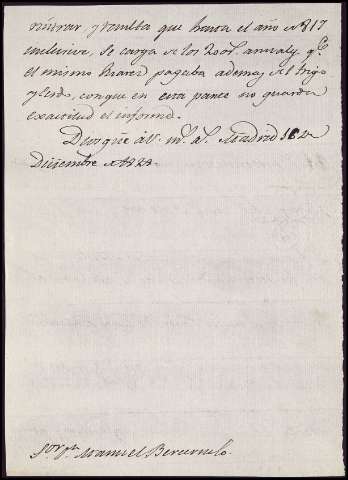 nistrar, y resulta que hasta el año de 1817
inclusive, se carga de los 200 r.s anuales q.e
el mismo Suarez pagaba ademas del trigo
y cerdo, con que en esta parte no guarda
exactitud el informe.
Dios gũe á V. m.s a.s Madrid 18 de
Diciembre de 1828.
S.or D.n Manuel